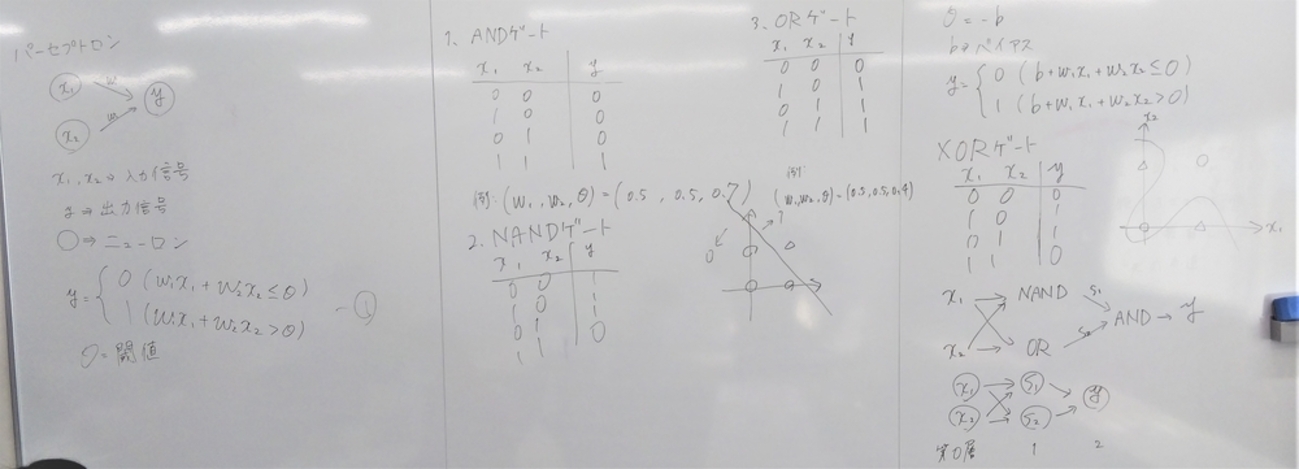 パーセプトロン
x₁ w₁ y
x₂ w₂
x₁, x₂ ⇒ 入力信号
y ⇒ 出力信号
○ ⇒ ニューロン
y = { 0 (w₁x₁ + w₂x₂ ≤ θ)
1 (w₁x₁ + w₂x₂ > θ) - ①
θ = 閾値
1. ANDゲート
x₁ x₂ y
0 0 0
1 0 0
0 1 0
1 1 1
例: (w₁, w₂, θ) = (0.5, 0.5, 0.7)
2. NANDゲート
x₁ x₂ y
0 0 1
1 0 1
0 1 1
1 1 0
3. ORゲート
x₁ x₂ y
0 0 0
1 0 1
0 1 1
1 1 1
例:
(w₁, w₂, θ) = (0.5, 0.5, 0.4)
0 1
θ = -b
b⇒バイアス
y = { 0 (b + w₁x₁ + w₂x₂ ≤ 0)
1 (b + w₁x₁ + w₂x₂ > 0)
XORゲート
x₁ x₂ y
0 0 0
1 0 1
0 1 1
1 1 0
x₂
x₁
x₁ NAND s₁
AND → y
x₂ OR s₂
x₁ s₁
y
x₂ s₂
第0層 1 2